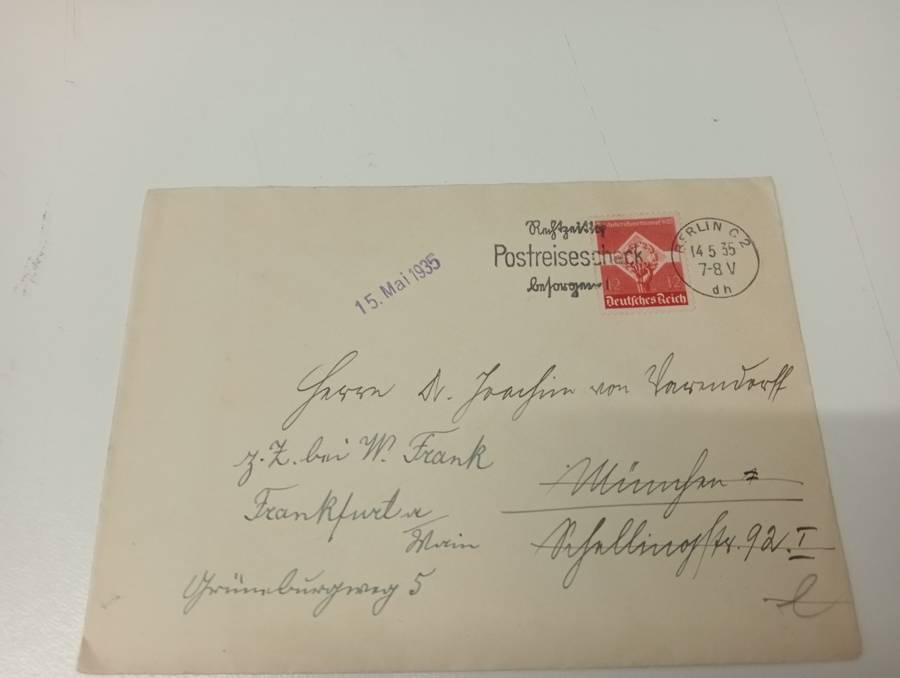 Rechtzeitig
Postreisescheck
besorgen!
BERLIN C 2
14.5.35
7-8 V
dh
12 12
Deutsches Reich
15. Mai 1935
Herrn Dr. Joachim von Varendorff
z. Z. bei W. Frank
Frankfurt a/
Main
Grüneburgweg 5
München
Schellingstr. 92. I